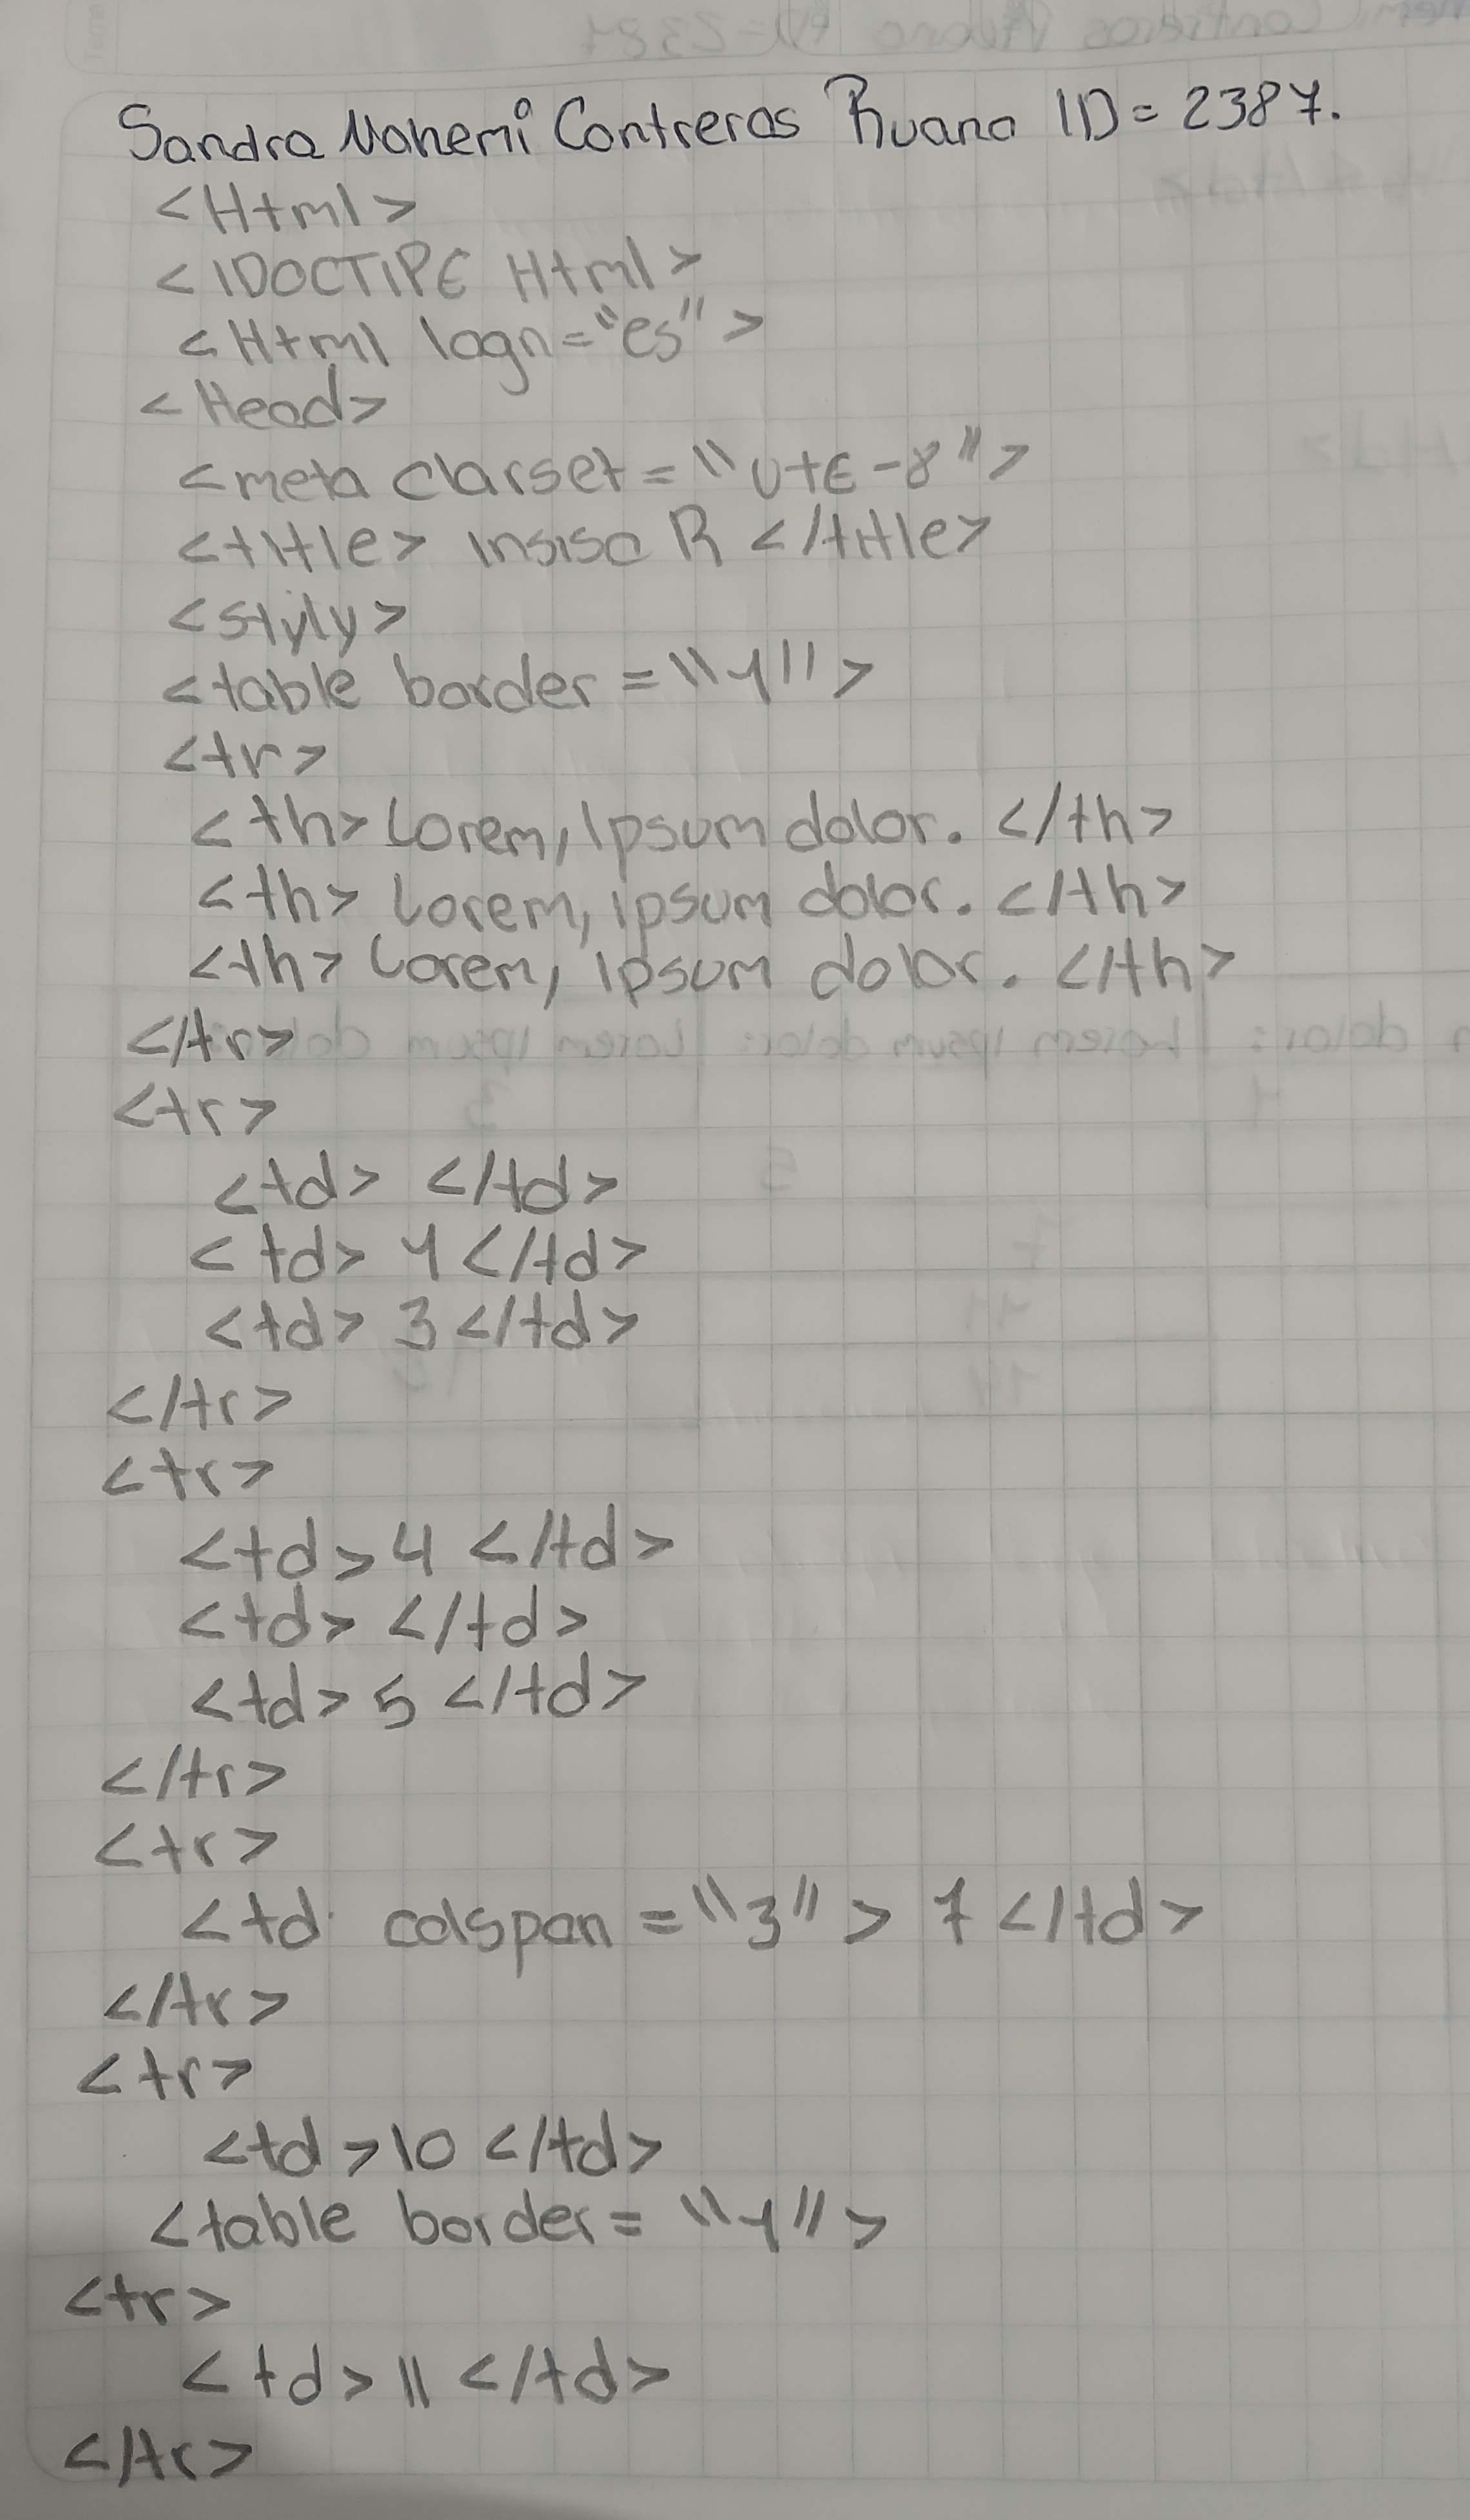 Sandra Nohemi Contreras Ruano ID = 2387.
<Html>
<!DOCTIPE Html>
<Html logn="es">
<Head>
<meta clarset = "UtE-8">
<title> Insiso R </title>
<styly>
<table border = "1">
<tr>
<th> Lorem, Ipsum dolor. </th>
<th> Lorem, ipsum dolor. </th>
<th> Lorem, ipsum dolor. </th>
</tr>
<tr>
<td> </td>
<td> 1 </td>
<td> 3 </td>
</tr>
<tr>
<td> 4 </td>
<td> </td>
<td> 5 </td>
</tr>
<tr>
<td colspan = "3" > 7 </td>
</tr>
<tr>
<td> 10 </td>
<table border = "1">
<tr>
<td> 11 </td>
</tr>